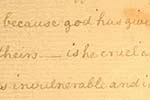 because god has give
theirs — is he cruel a
s invulnerable and i